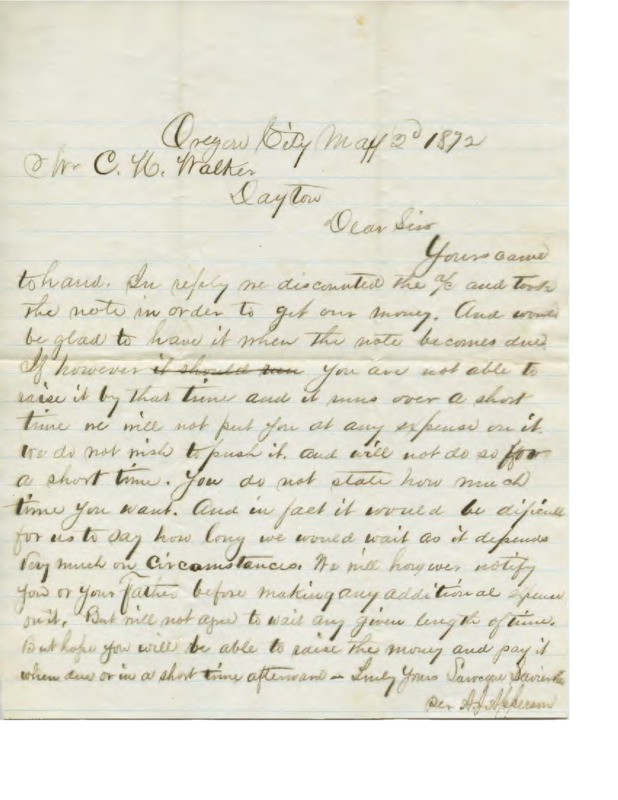 Oregon City May 2d 1872
Mr C. H. Walker
Dayton
Dear Sir
Yours came
to hand. In reply we discounted the a/c and took
the note in order to get our money. And would
be glad to have it when the note becomes due.
If however it should run you are not able to
raise it by that time and it runs over a short
time we will not put you at any expense on it.
We do not wish to push it. and will not do so for
a short time. You do not state how much
time you want. And in fact it would be dificult
for us to say how long we would wait as it depends
very much on Circumstances. We will however notify
you or your Father before making any additional expense
on it. But will not agree to wait any given length of time.
But hope you will be able to raise the money and pay it
when due or in a short time afterward – Truly Yours
per A.J. Apperson